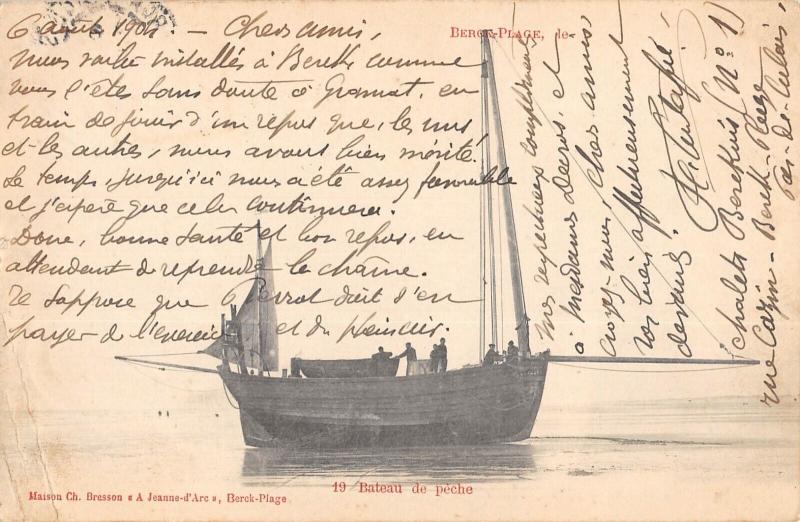 BERCK-PLAGE, le
6 août 1904. — Chers amis,
nous voilà installés à Berck comme
vous l'êtes sans doute à Gramat, en
train de jouir d'un repos que, les uns
et les autres, nous avons bien mérité.
Le temps jusqu'ici nous a été assez favorable
et j'espère que cela continuera.
Donc, bonne santé et bon repos, en
attendant de reprendre la chaîne.
Je suppose que Perrot doit s'en
payer de l'exercice et du
mes respectueux compliments
à Madame et
croyez-moi, chers amis
vos bien affectueusement
dévoués.
Chalets Berckois (No 1)
rue Cazin - Berck-Plage
Pas-de-Calais
19 Bateau de pêche
Maison Ch. Bresson « A Jeanne-d'Arc », Berck-Plage